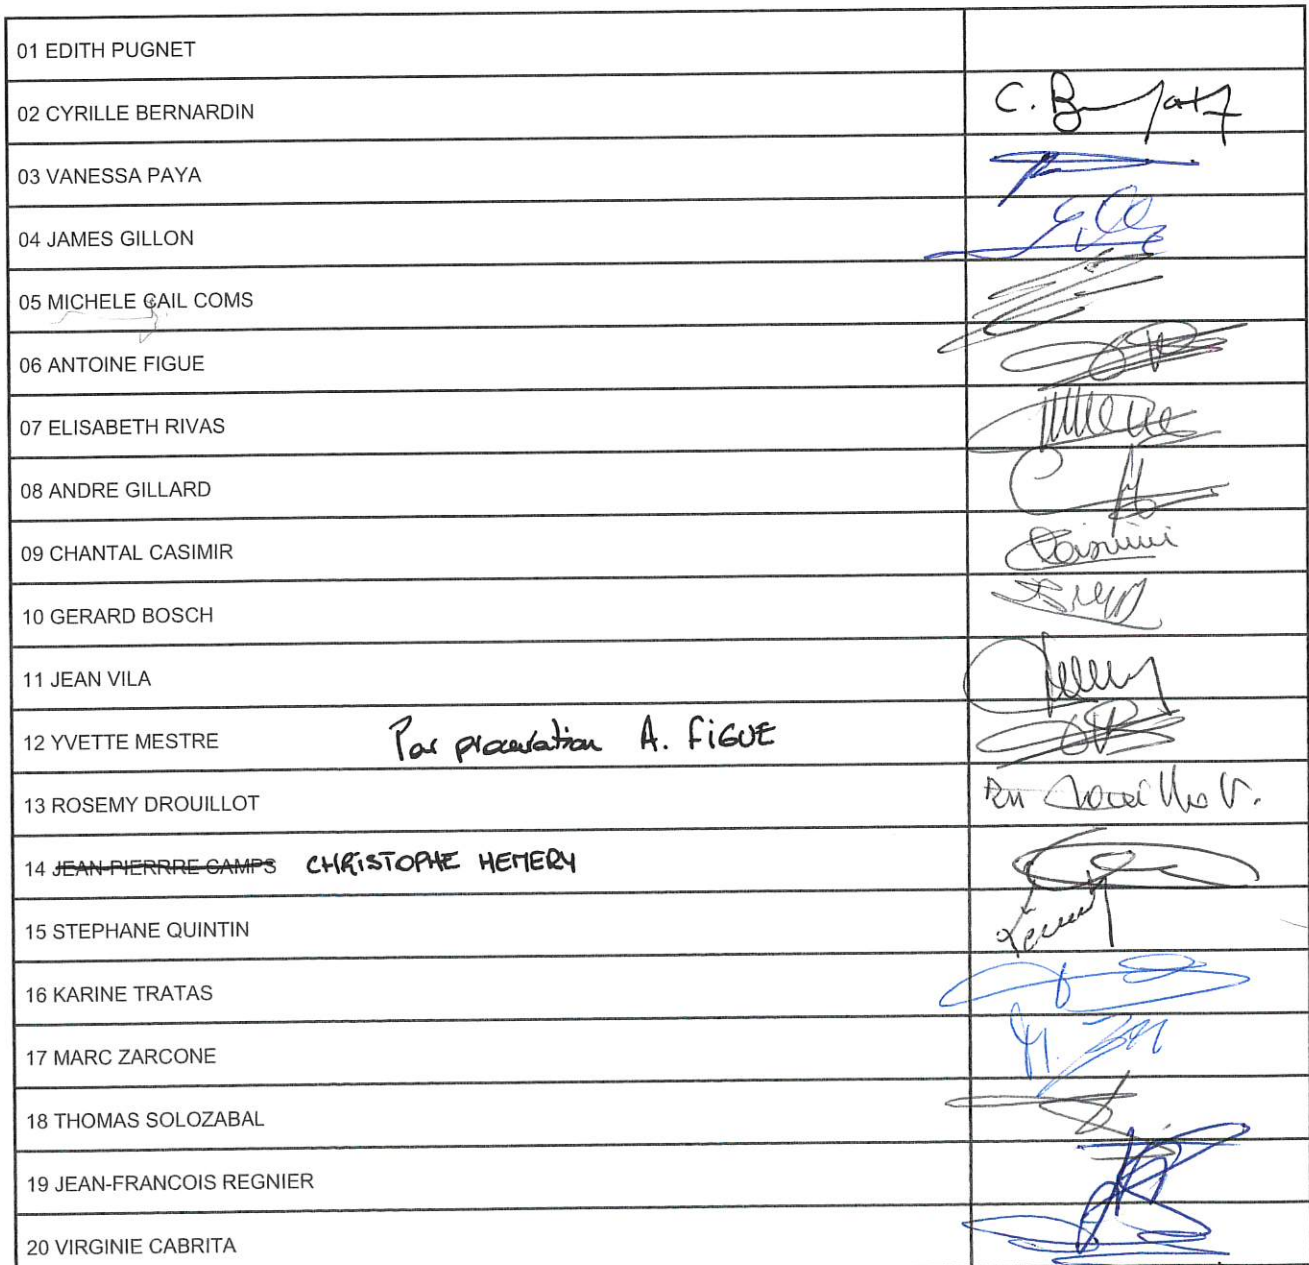 01 EDITH PUGNET
02 CYRILLE BERNARDIN C.
03 VANESSA PAYA
04 JAMES GILLON
05 MICHELE GAIL COMS
06 ANTOINE FIGUE
07 ELISABETH RIVAS
08 ANDRE GILLARD
09 CHANTAL CASIMIR Casimir
10 GERARD BOSCH
11 JEAN VILA
12 YVETTE MESTRE Par procuration A. FIGUE
13 ROSEMY DROUILLOT
14 JEAN-PIERRRE CAMPS CHRISTOPHE HEMERY
15 STEPHANE QUINTIN
16 KARINE TRATAS
17 MARC ZARCONE M.
18 THOMAS SOLOZABAL
19 JEAN-FRANCOIS REGNIER
20 VIRGINIE CABRITA